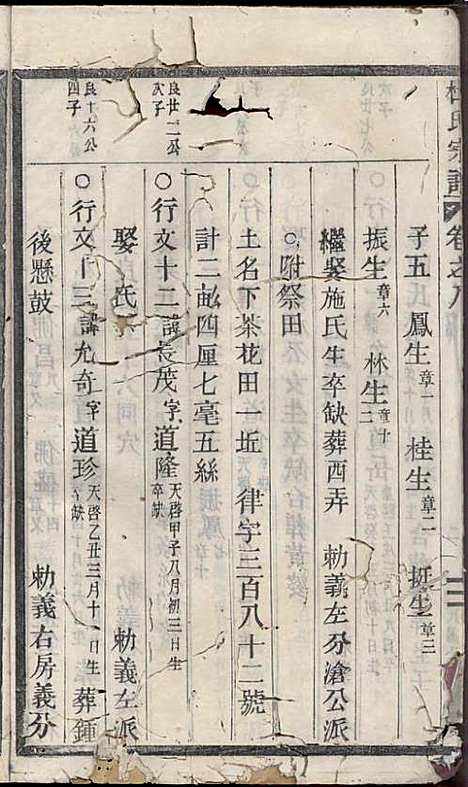 氏宗譜 卷之八
子五 鳳生章一 桂生章二 挺生章三
振生章六 林生章十二
繼娶施氏生卒缺葬西弄 勅義左分滄公派
○附祭田
土名下茶花田一坵 律字三百八十二號
計二畝四厘七毫五絲
良廿二公次子
○行文十二諱長茂字道隆天啓甲子八月初三日生卒缺
娶 氏 勅義左派
良十六公四子
○行文十三諱允奇字道珍天啓乙丑三月十 日生卒缺 葬鍾
後懸鼓 勅義右房義分